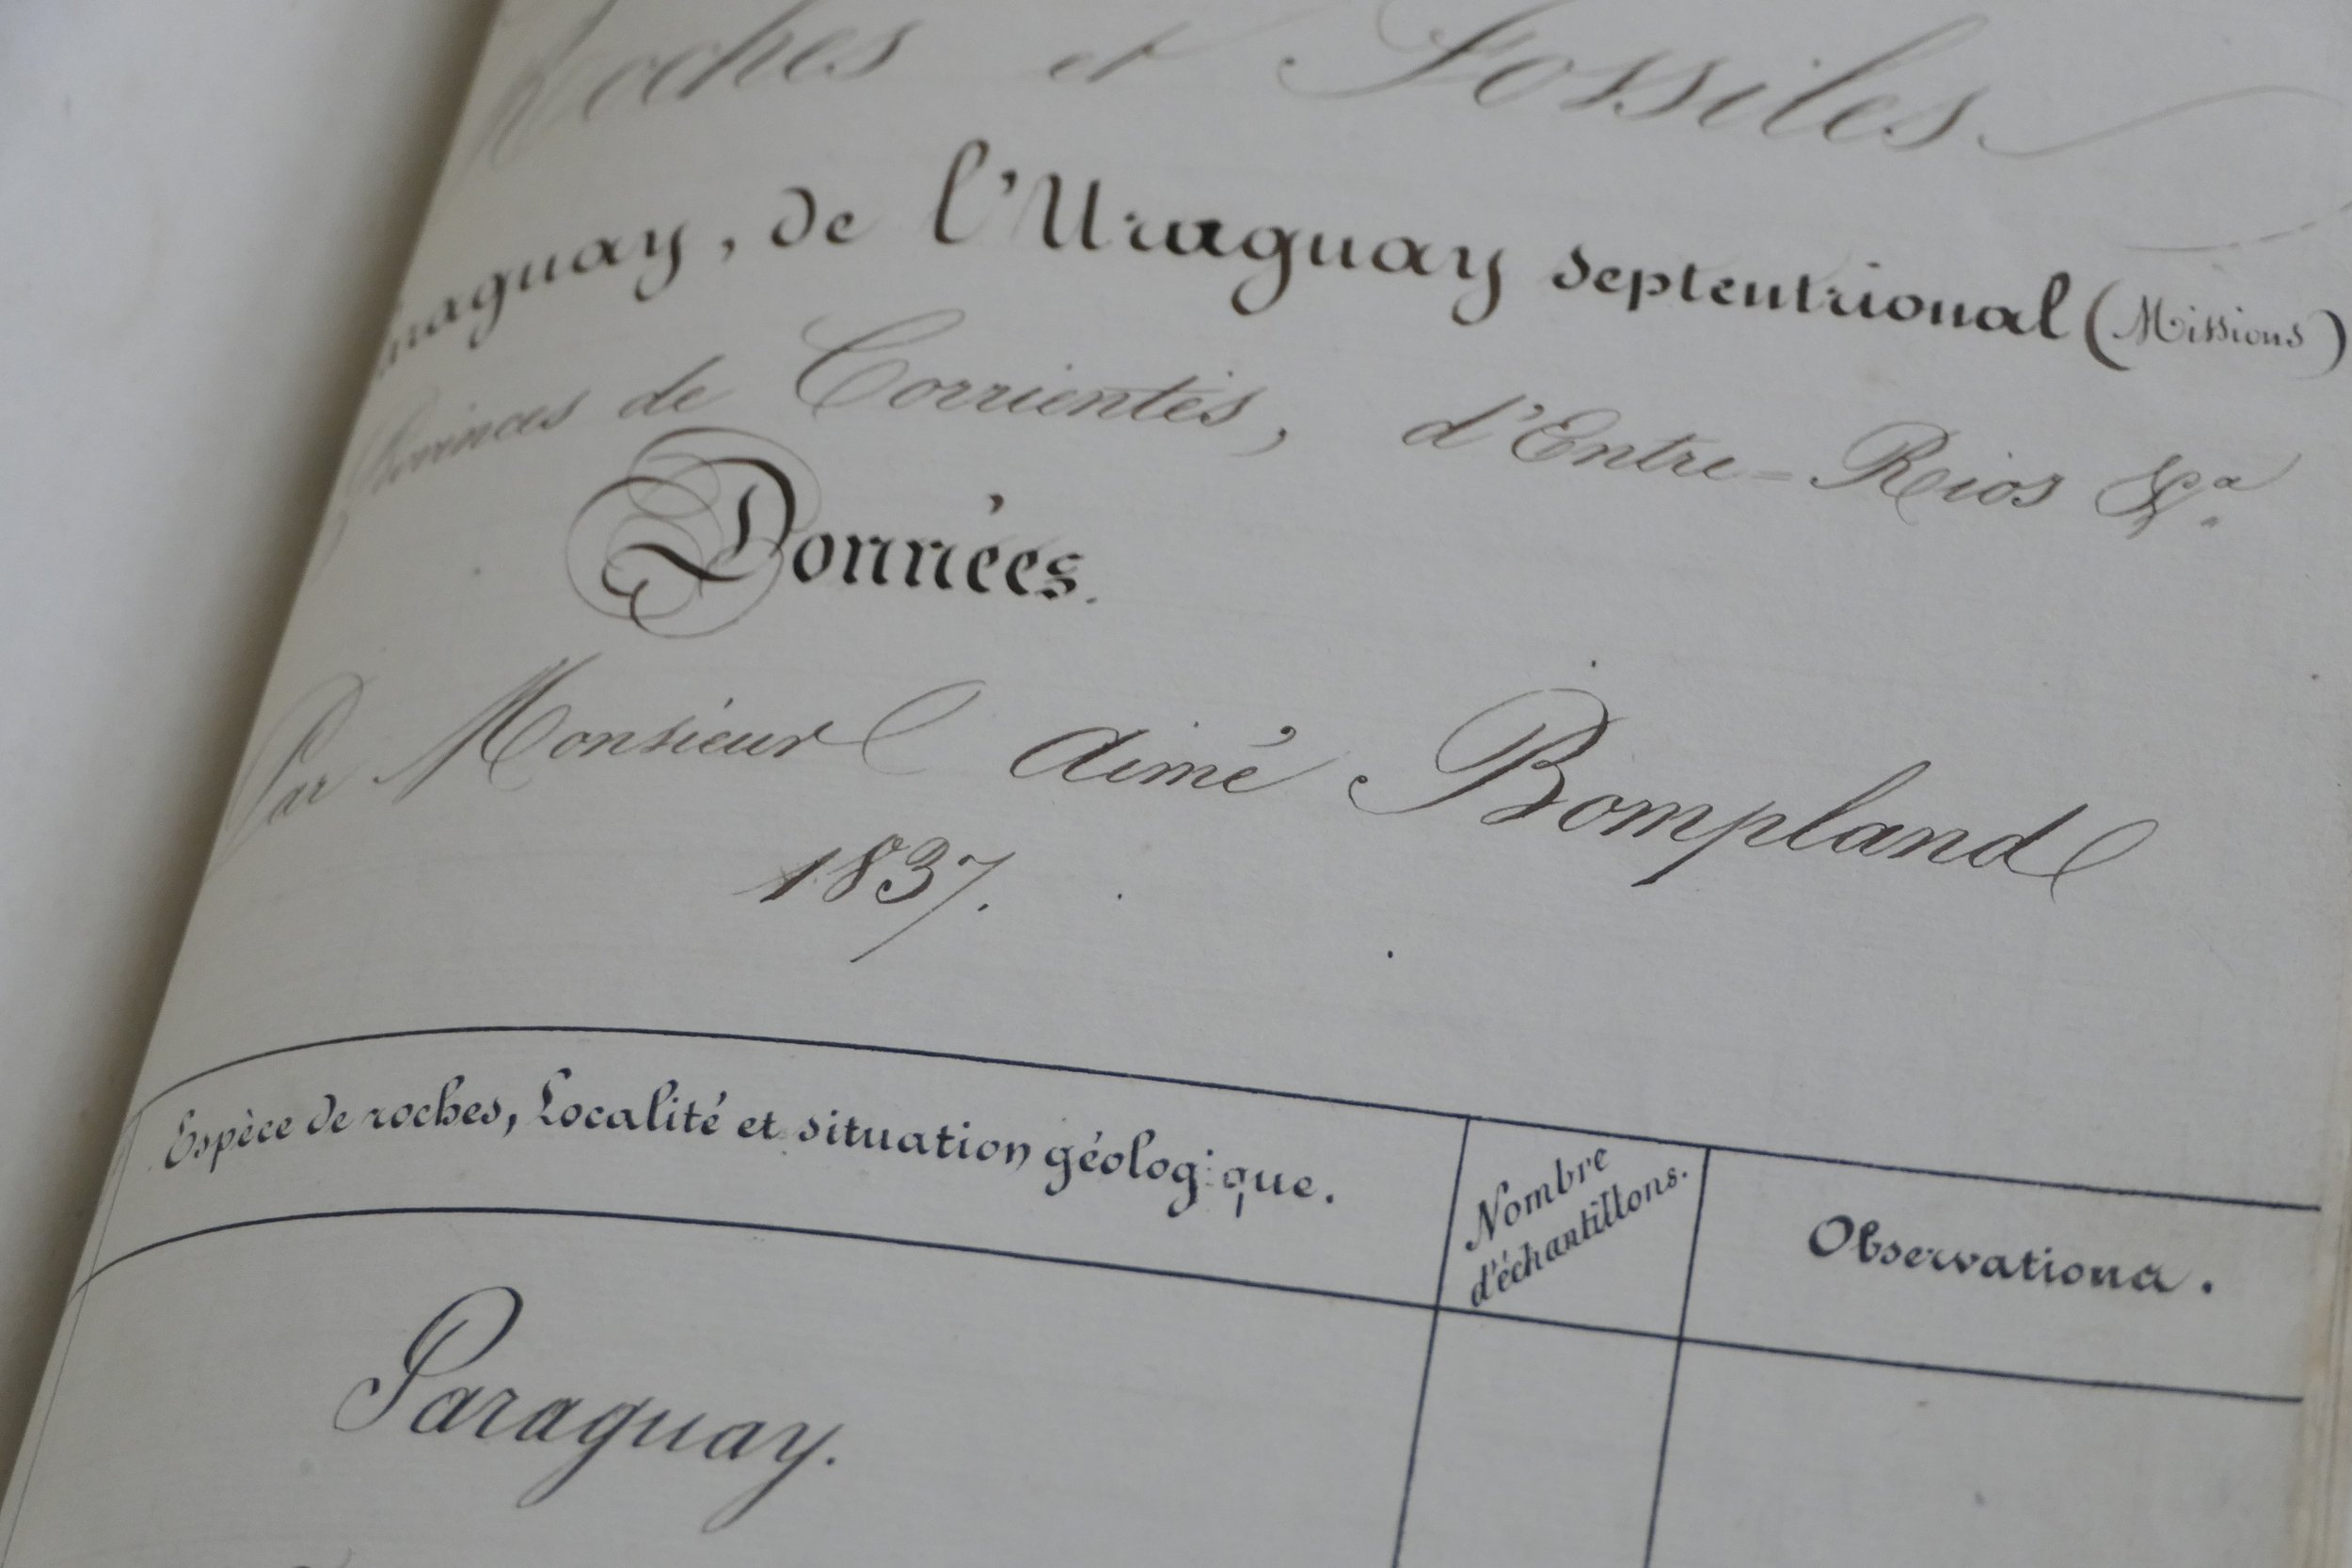 Roches et Fossiles
Paraguay, de l'Uraguay septentrional (Missions)
Provinces de Corrientes, d'Entre-Rios &.a
Données.
Par Monsieur Aimé Bompland
1837.
Espèce de roches, Localité et situation géologique.
Nombre
d'échantillons.
Observations.
Paraguay.